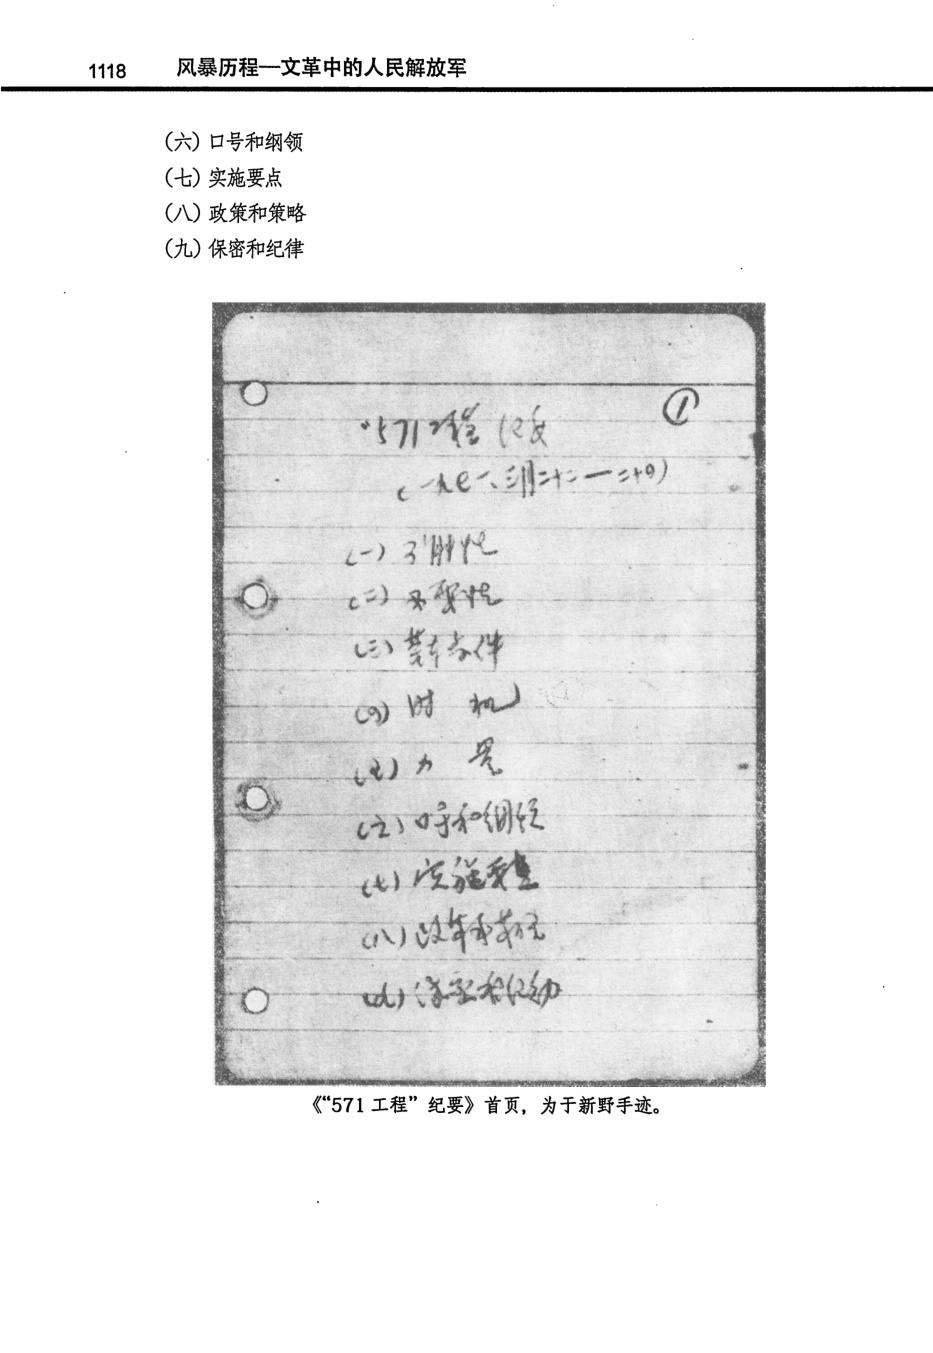 1118 风暴历程—文革中的人民解放军
（六）口号和纲领
（七）实施要点
（八）政策和策略
（九）保密和纪律
①
“571工程”纪要
（一九七一、三月二十二—二十四）
（一）可能性
（二）必要性
（三）基本条件
（四）时 机
（五）力 量
（六）口号和纲领
（七）实施要点
（八）政策和策略
（九）保密和纪律
《“571 工程”纪要》首页，为于新野手迹。